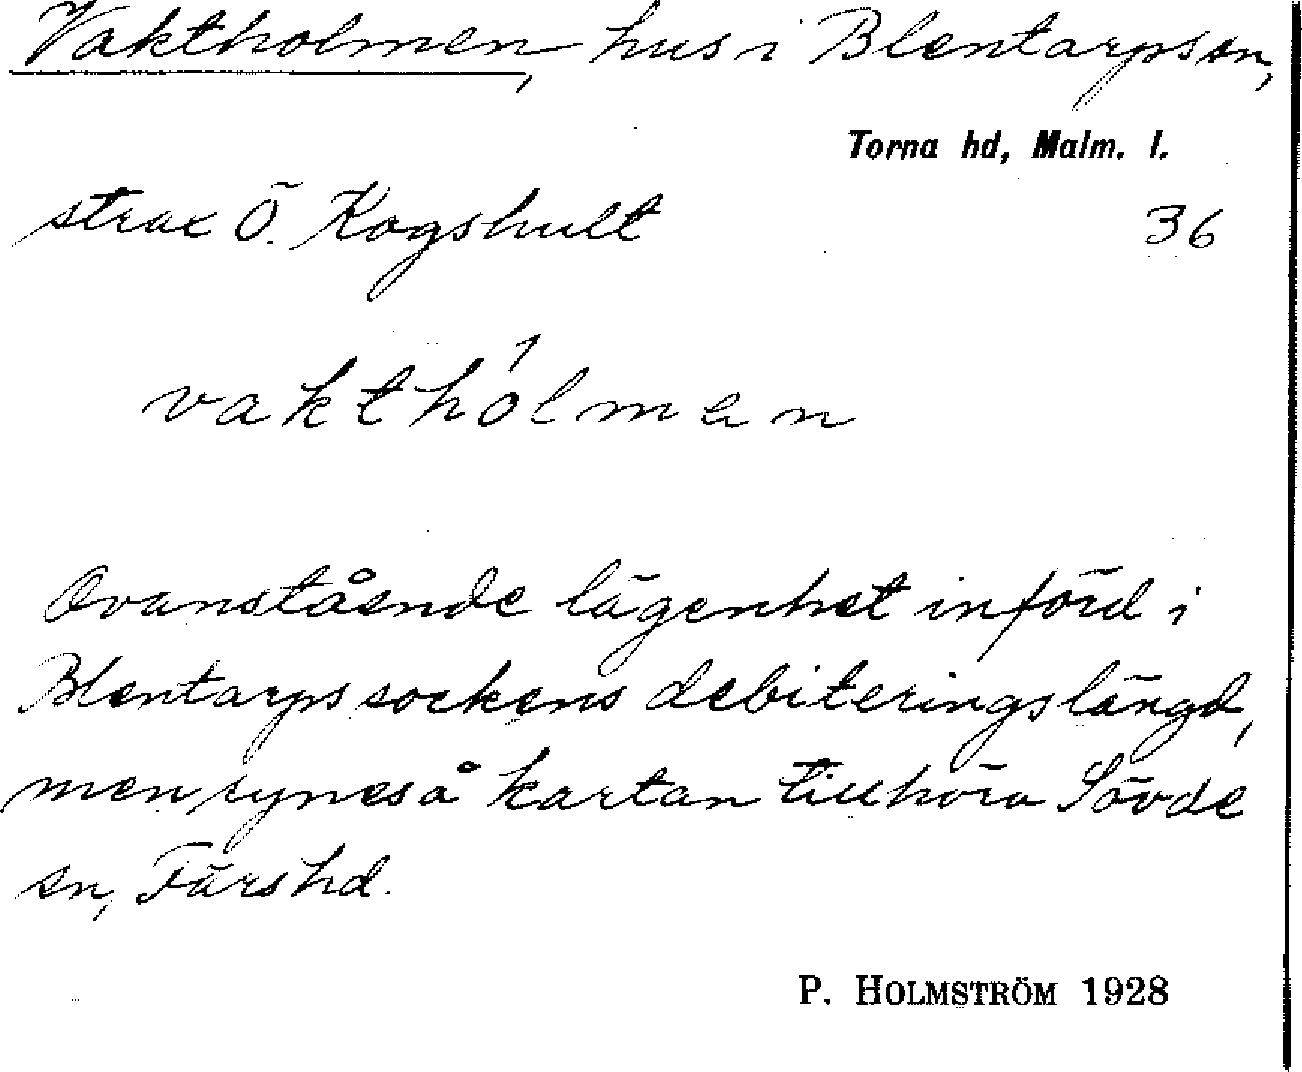 Vaktholmen, hus i Blentarps sn,
Torna hd, Malm. l.
strax Ö. Kogshult 36
vakthólmen
Ovanstående lägenhet införd i
Blentarps sockens debiteringslängd,
men synes å kartan tillhöra Sövde
sn, Färs hd.
P. HOLMSTRÖM 1928